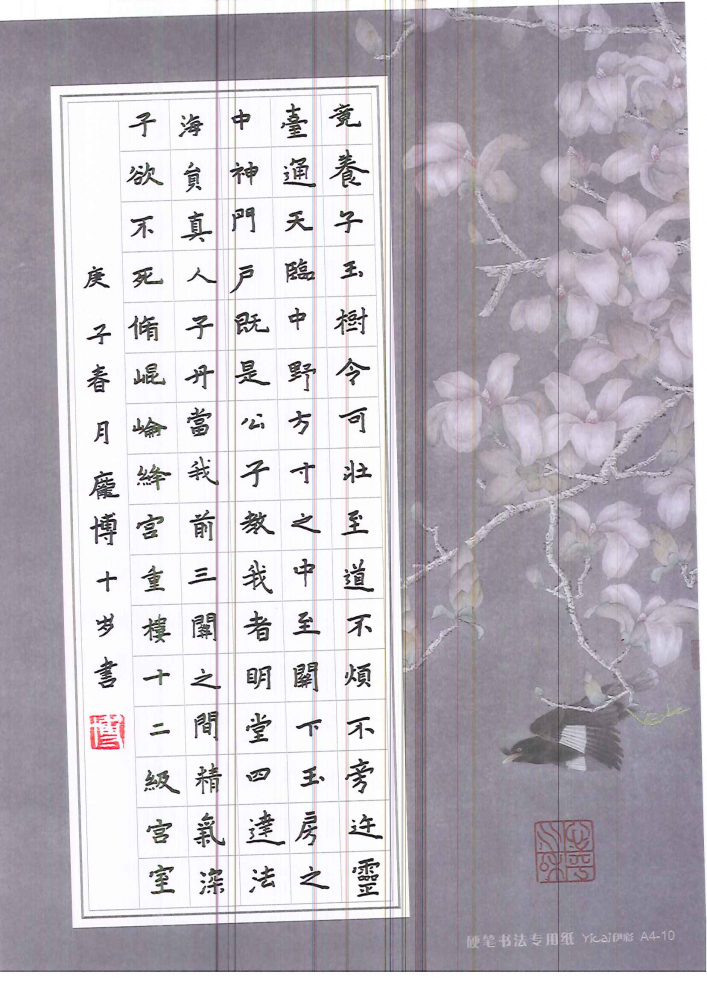 竟養子玉樹令可壯至道不煩不旁迕靈
臺通天臨中野方寸之中至關下玉房之
中神門戶既是公子教我者明堂四達法
海員真人子丹當我前三關之間精氣深
子欲不死脩崐崘絳宮重樓十二級宮室
庚子春月龐博十岁書
硬笔书法专用纸 Yicai伊彩 A4-10